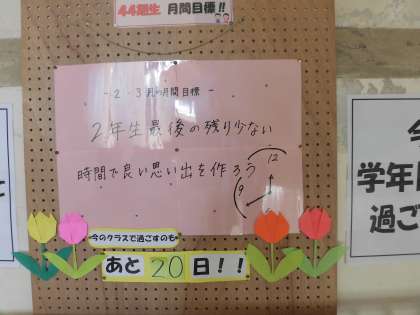 44期生 月間目標!!
- 2・3月の月間目標 -
2年生最後の残り少ない
時間で良い思い出を作ろう
12
9
今のクラスで過ごすのも
あと20日!!
学年
過ご